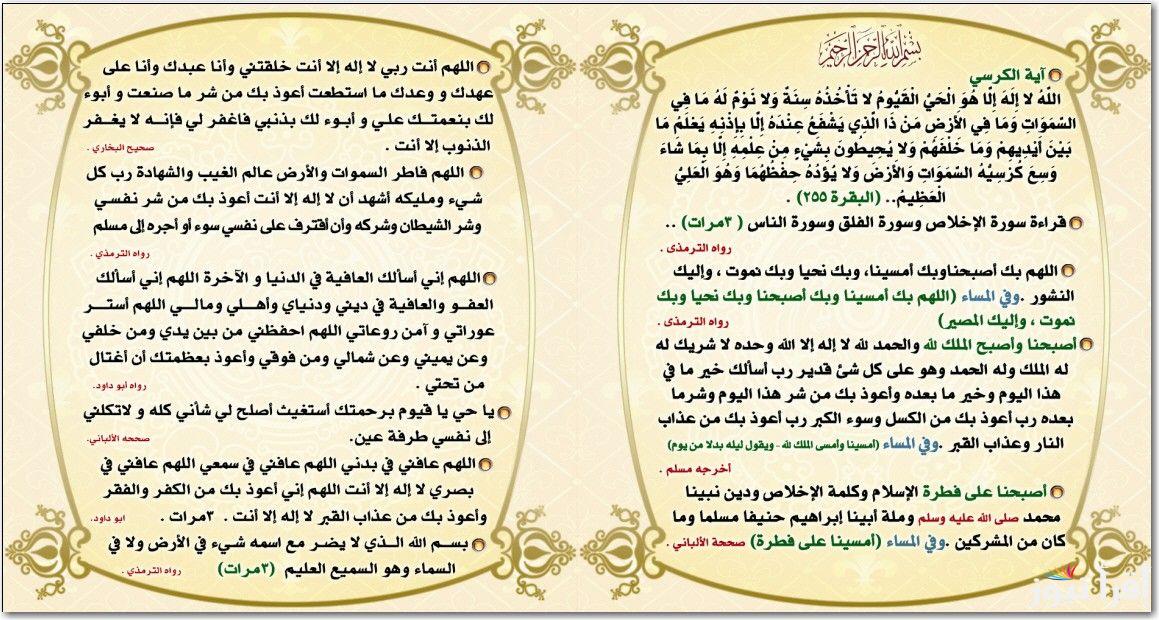 بسم الله الرحمن الرحيم
آية الكرسي
اللَّهُ لا إِلَهَ إِلَّا هُوَ الْحَيُّ الْقَيُّومُ لا تَأْخُذُهُ سِنَةٌ وَلا نَوْمٌ لَهُ مَا فِي
السَّمَوَاتِ وَمَا فِي الأَرْضِ مَنْ ذَا الَّذِي يَشْفَعُ عِنْدَهُ إِلَّا بِإِذْنِهِ يَعْلَمُ مَا
بَيْنَ أَيْدِيهِمْ وَمَا خَلْفَهُمْ وَلا يُحِيطُونَ بِشَيْءٍ مِنْ عِلْمِهِ إِلَّا بِمَا شَاءَ
وَسِعَ كُرْسِيُّهُ السَّمَوَاتِ وَالأَرْضَ وَلا يُؤْدُهُ حِفْظُهُمَا وَهُوَ الْعَلِيُّ
الْعَظِيمُ.. (البقرة ٢٥٥) .
قراءة سورة الإخلاص وسورة الفلق وسورة الناس ( ٣مرات) ..
رواه الترمذى .
اللهم بك أصبحناوبك أمسينا، وبك نحيا وبك نموت ، وإليك
النشور .وفي المساء (اللهم بك أمسينا وبك أصبحنا وبك نحيا وبك
نموت ، وإليك المصير) رواه الترمذى .
أصبحنا وأصبح الملك لله والحمد لله لا إله إلا الله وحده لا شريك له
له الملك وله الحمد وهو على كل شئ قدير رب أسألك خير ما في
هذا اليوم وخير ما بعده وأعوذ بك من شر هذا اليوم وشرما
بعده رب أعوذ بك من الكسل وسوء الكبر رب أعوذ بك من عذاب
النار وعذاب القبر .وفي المساء (أمسينا وأمسى الملك لله - ويقول ليله بدلا من يوم)
أخرجه مسلم .
أصبحنا على فطرة الإسلام وكلمة الإخلاص ودين نبينا
محمد صلى الله عليه وسلم وملة أبينا إبراهيم حنيفا مسلما وما
كان من المشركين .وفي المساء (أمسينا على فطرة) صححة الألباني .
اللهم أنت ربي لا إله إلا أنت خلقتني وأنا عبدك وأنا على
عهدك و وعدك ما استطعت أعوذ بك من شر ما صنعت و أبوء
لك بنعمتــك علــي و أبــوء لك بذنبي فاغفر لي فإنــه لا يغــفر
الذنوب إلا أنت . صحيح البخاري .
اللهم فاطر السموات والأرض عالم الغيب والشهادة رب كل
شــيء ومليكه أشهد أن لا إله إلا أنت أعوذ بك من شر نفســي
وشر الشيطان وشركه وأن أقترف على نفسي سوء أو أجره إلى مسلم
رواه الترمذي .
اللهم إني أسألك العافية في الدنيا و الآخرة اللهم إني أسألك
العفــو والعافية في ديني ودنياي وأهــلي ومالــي اللهم أستــر
عوراتي و آمن روعاتي اللهم احفظني من بين يدي ومن خلفي
وعن يميني وعن شمالي ومن فوقي وأعوذ بعظمتك أن أغتال
من تحتي . رواه أبو داود.
يا حي يا قيوم برحمتك أستغيث أصلح لي شأني كله و لاتكلني
إلى نفسي طرفة عين. صححه الألباني.
اللهم عافني في بدني اللهم عافني في سمعي اللهم عافني في
بصري لا إله إلا أنت اللهم إني أعوذ بك من الكفر والفقر
وأعوذ بك من عذاب القبر لا إله إلا أنت . ٣مرات . ابو داود.
بســم الله الــذي لا يضــر مع اسمه شــيء في الأرض ولا في
السماء وهو السميع العليم (٣مرات) رواه الترمذي .
إقرأ نيوز